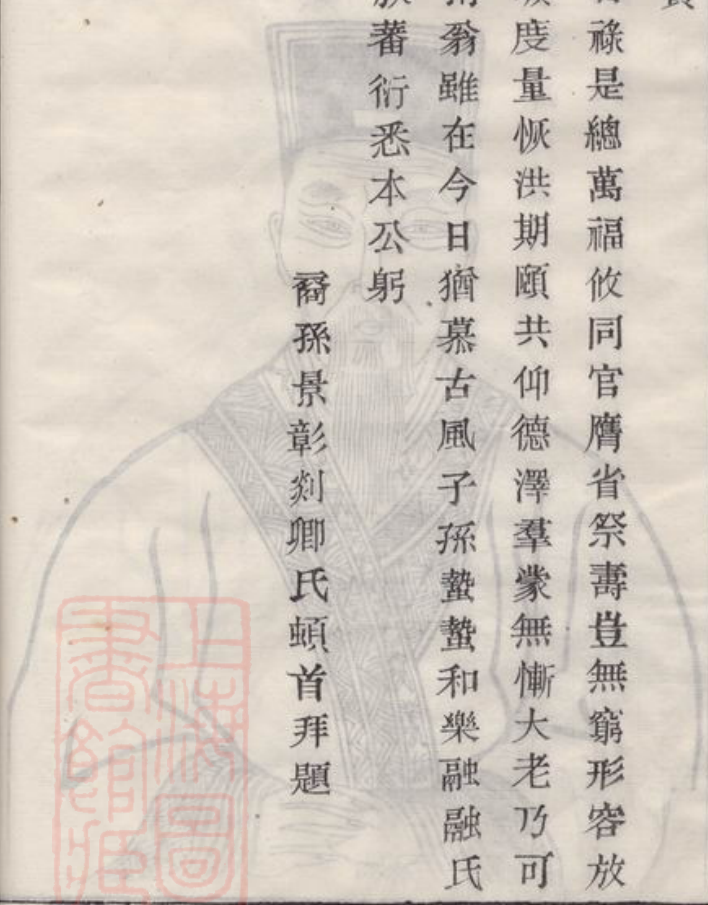 祿是總萬福攸同官膺省祭壽豈無窮形容放
度量恢洪期頤共仰德澤羣蒙無慚大老乃可
翁雖在今日猶慕古風子孫蟄蟄和樂融融氏
族蕃衍悉本公躬
裔孫景彰剡卿氏頓首拜題
上海圖書館藏